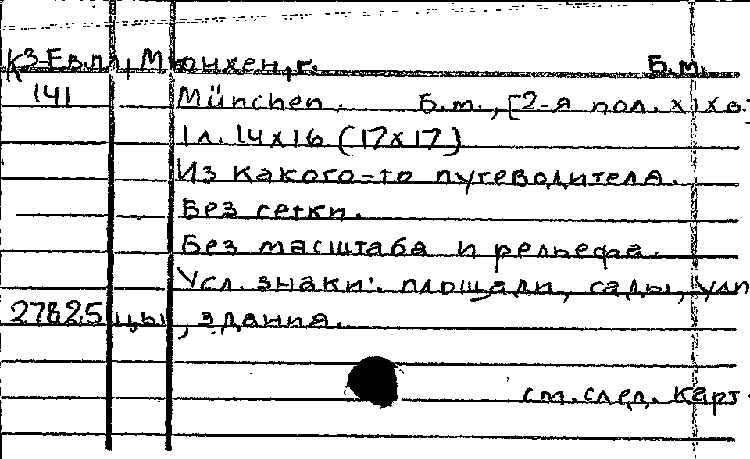 К3-Евлл, Мюнхен, г. Б.м.
141 München. Б.м., [2-я пол. XIX в.]
1 л. 14x16 (17x17)
Из какого-то путеводителя.
Без сетки.
Без масштаба и рельефа.
Усл. знаки: площади, сады, ули
27825 цы, здания.
см. след. карт.